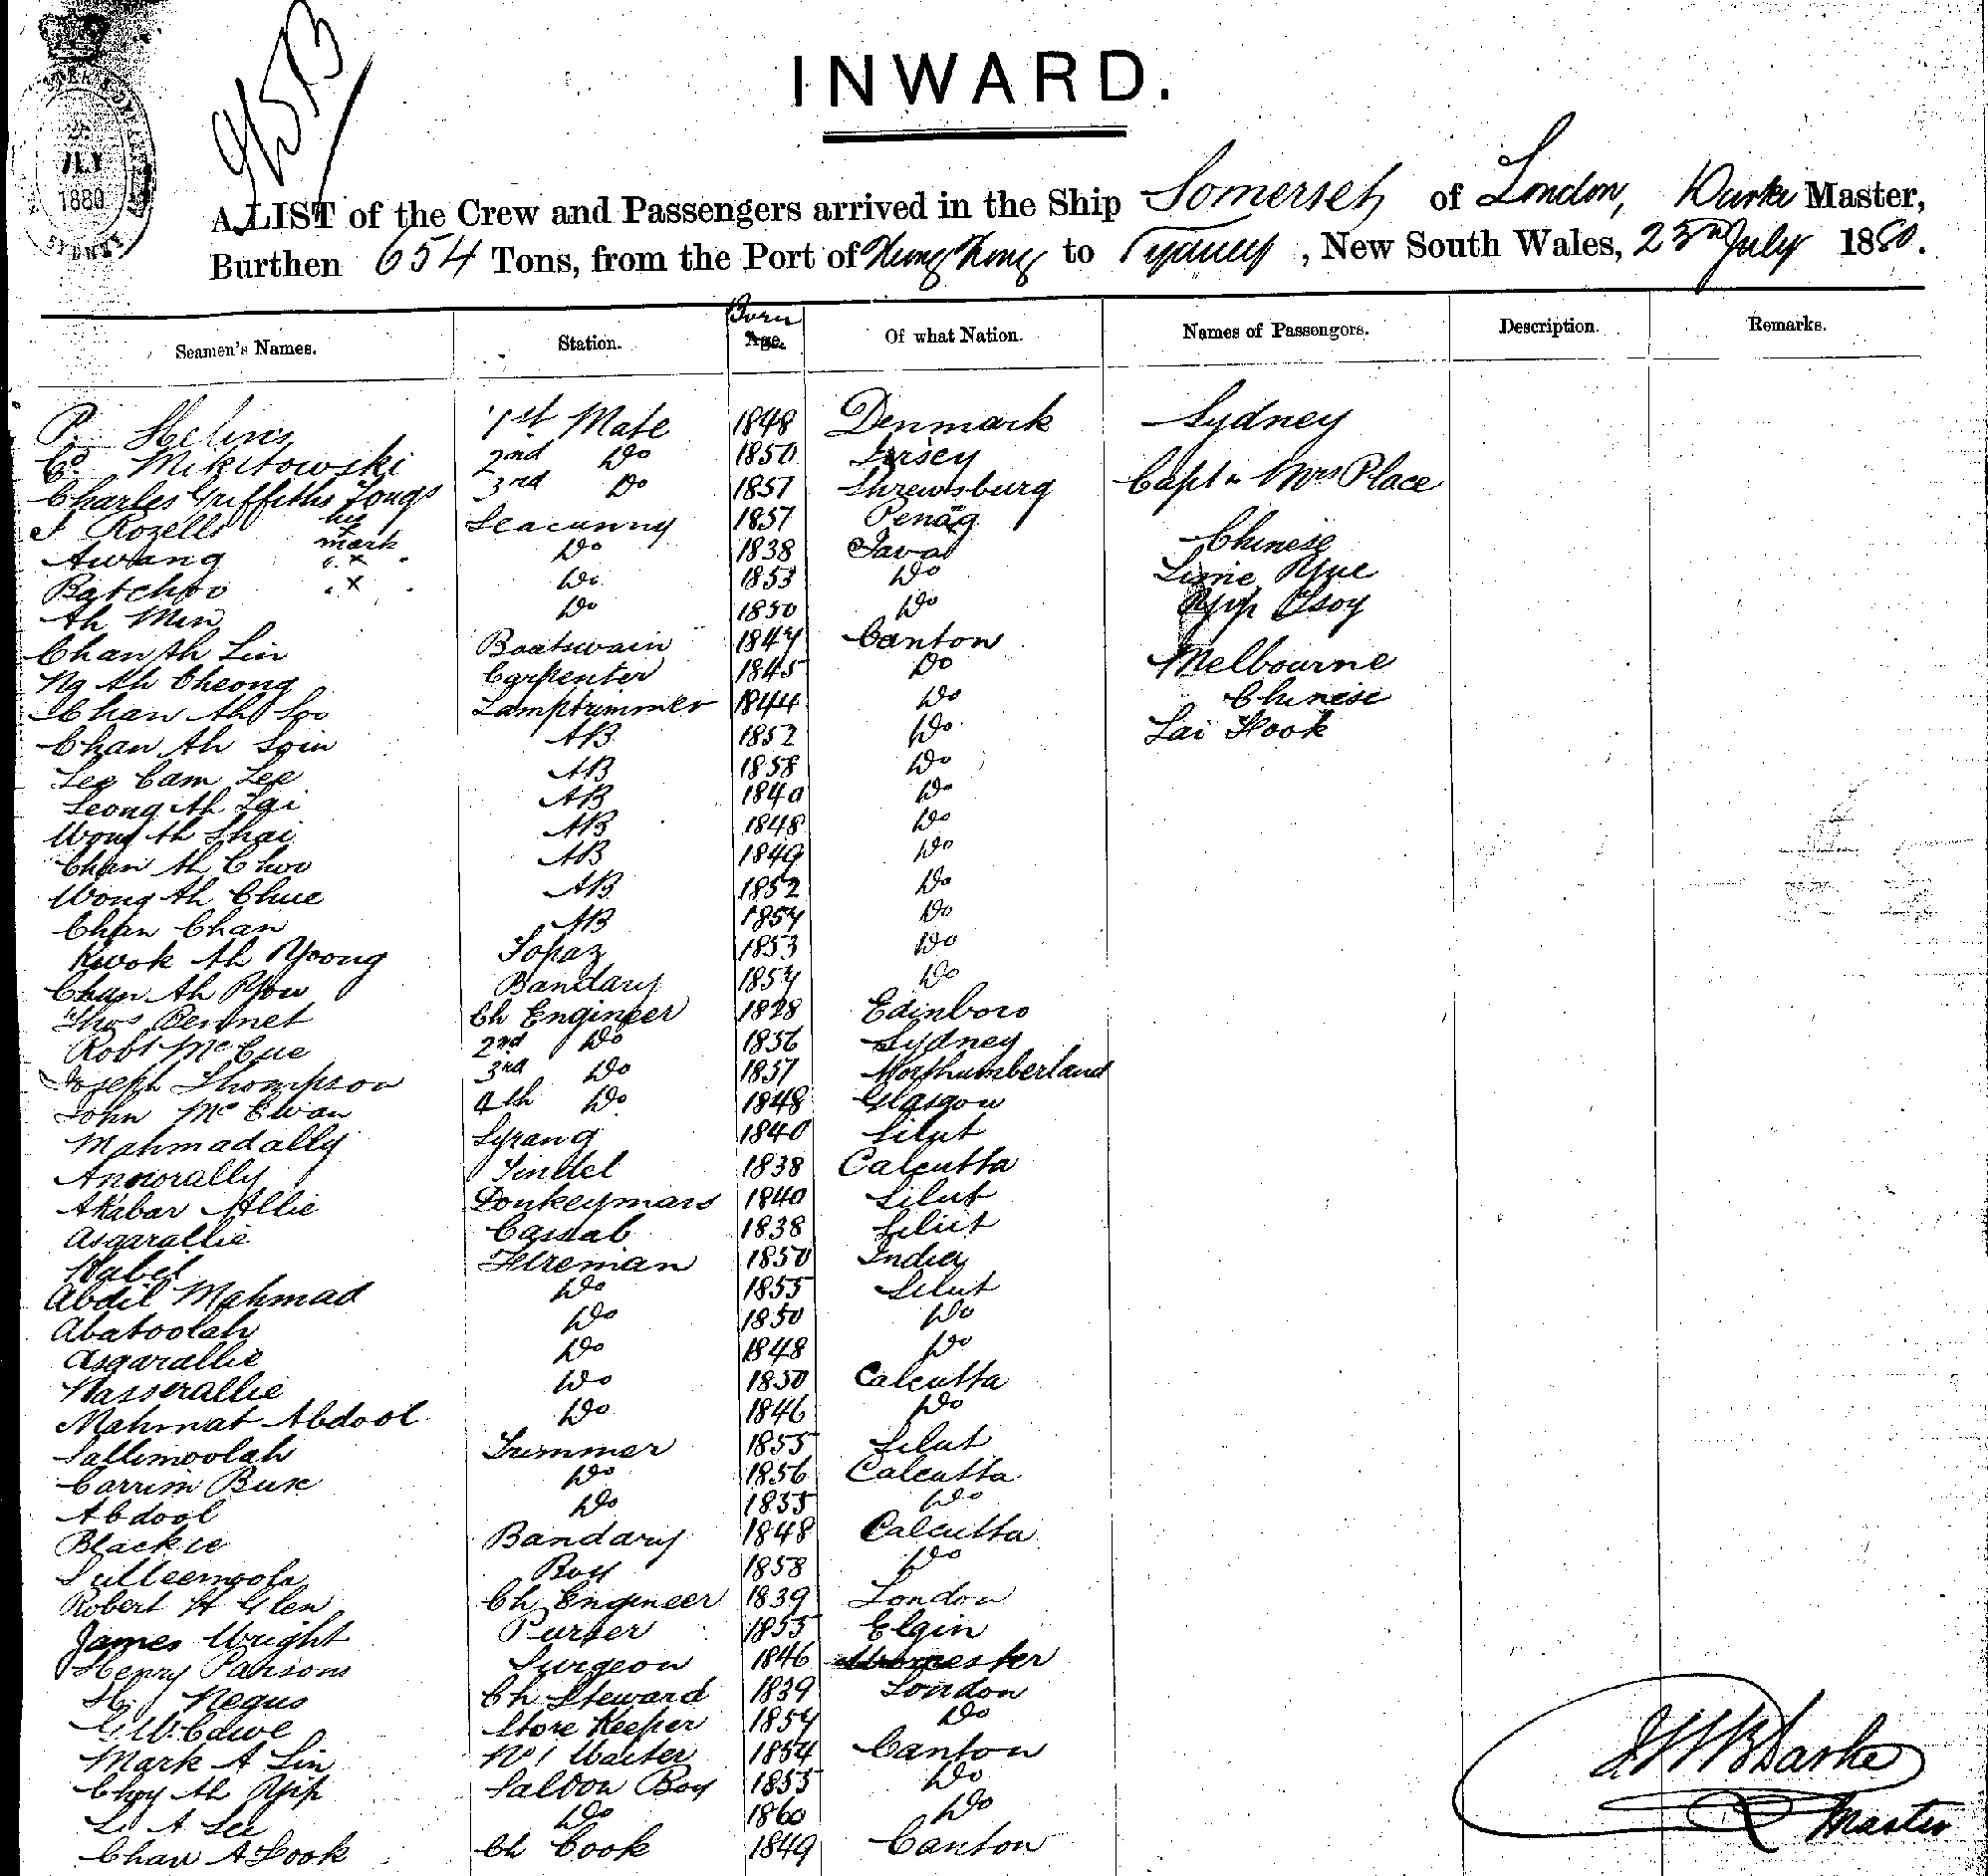 9/513
JLY
1880
SYDNEY
INWARD.
A LIST of the Crew and Passengers arrived in the Ship Somerset of London, Darke Master,
Burthen 654 Tons, from the Port of Hong Kong to Sydney, New South Wales, 23rd July 1880.
Seamen's Names. Station. Born Age. Of what Nation. Names of Passengers. Description. Remarks.
P. Helms 1st Mate 1848 Denmark Sydney
C. Mikitowski 2nd Do 1850 Jersey
Charles Griffiths Tongs 3rd Do 1857 Shrewsburg Capt & Mrs Place
J Rozells his Seacunny 1857 Penag
Awang mark x Do 1838 Java Chinese
Batchoo x Do 1853 Do
Ah Min Do 1850 Do Yip Tsoy
Chan Ah Lin Boatswain 1847 Canton
Ng Ah Cheong Carpenter 1845 Do Melbourne
Chan Ah Soo Lamptrimmer 1844 Do Chinese
Chan Ah Soin AB 1852 Do Lai Hook
Lee Cam Lee AB 1858 Do
Leong Ah Lai AB 1840 Do
Wong Ah Shai AB 1848 Do
Chan Ah Choo AB 1849 Do
Wong Ah Chue AB 1852 Do
Chan Chan AB 1854 Do
Kwok Ah Yoong Topaz 1853 Do
Chan Ah You Bandary 1854 Do
Thos Bennet Ch Engineer 1828 Edinboro
Robt McCue 2nd Do 1856 Sydney
Joseph Thompson 3rd Do 1857 Northumberland
John McEwan 4th Do 1848 Glasgow
Mahmadally Syrang 1840 Silut
Annorally Tindel 1838 Calcutta
Akabar Allie Donkeymans 1840 Silut
Asgarallie Cassab 1838 Silut
Habel Fireman 1850 India
Abdil Mahmad Do 1855 Silut
Abatoolah Do 1850 Do
Asgarallie Do 1848 Do
Nasserallie Do 1850 Calcutta
Mahmat Abdool Do 1846 Do
Sallimoolah Trimmer 1855 Silut
Carrim Bux Do 1856 Calcutta
Abdool Do 1855 Do
Blackie Bandary 1848 Calcutta
Sulleemoola Boy 1858 Do
Robert H Glen Ch Engineer 1839 London
James Wright Purser 1855 Elgin
Henry Parsons Surgeon 1846
H. J Negus Ch Steward 1839 London
G W Cawe Store Keeper 1854 Do
Mark A Lin No 1 Waiter 1854 Canton
Choy Ah Yip Saloon Boy 1855 Do
L A See Do 1860 Do
Chan A Fook Ch Cook 1849 Canton
Darke
Master